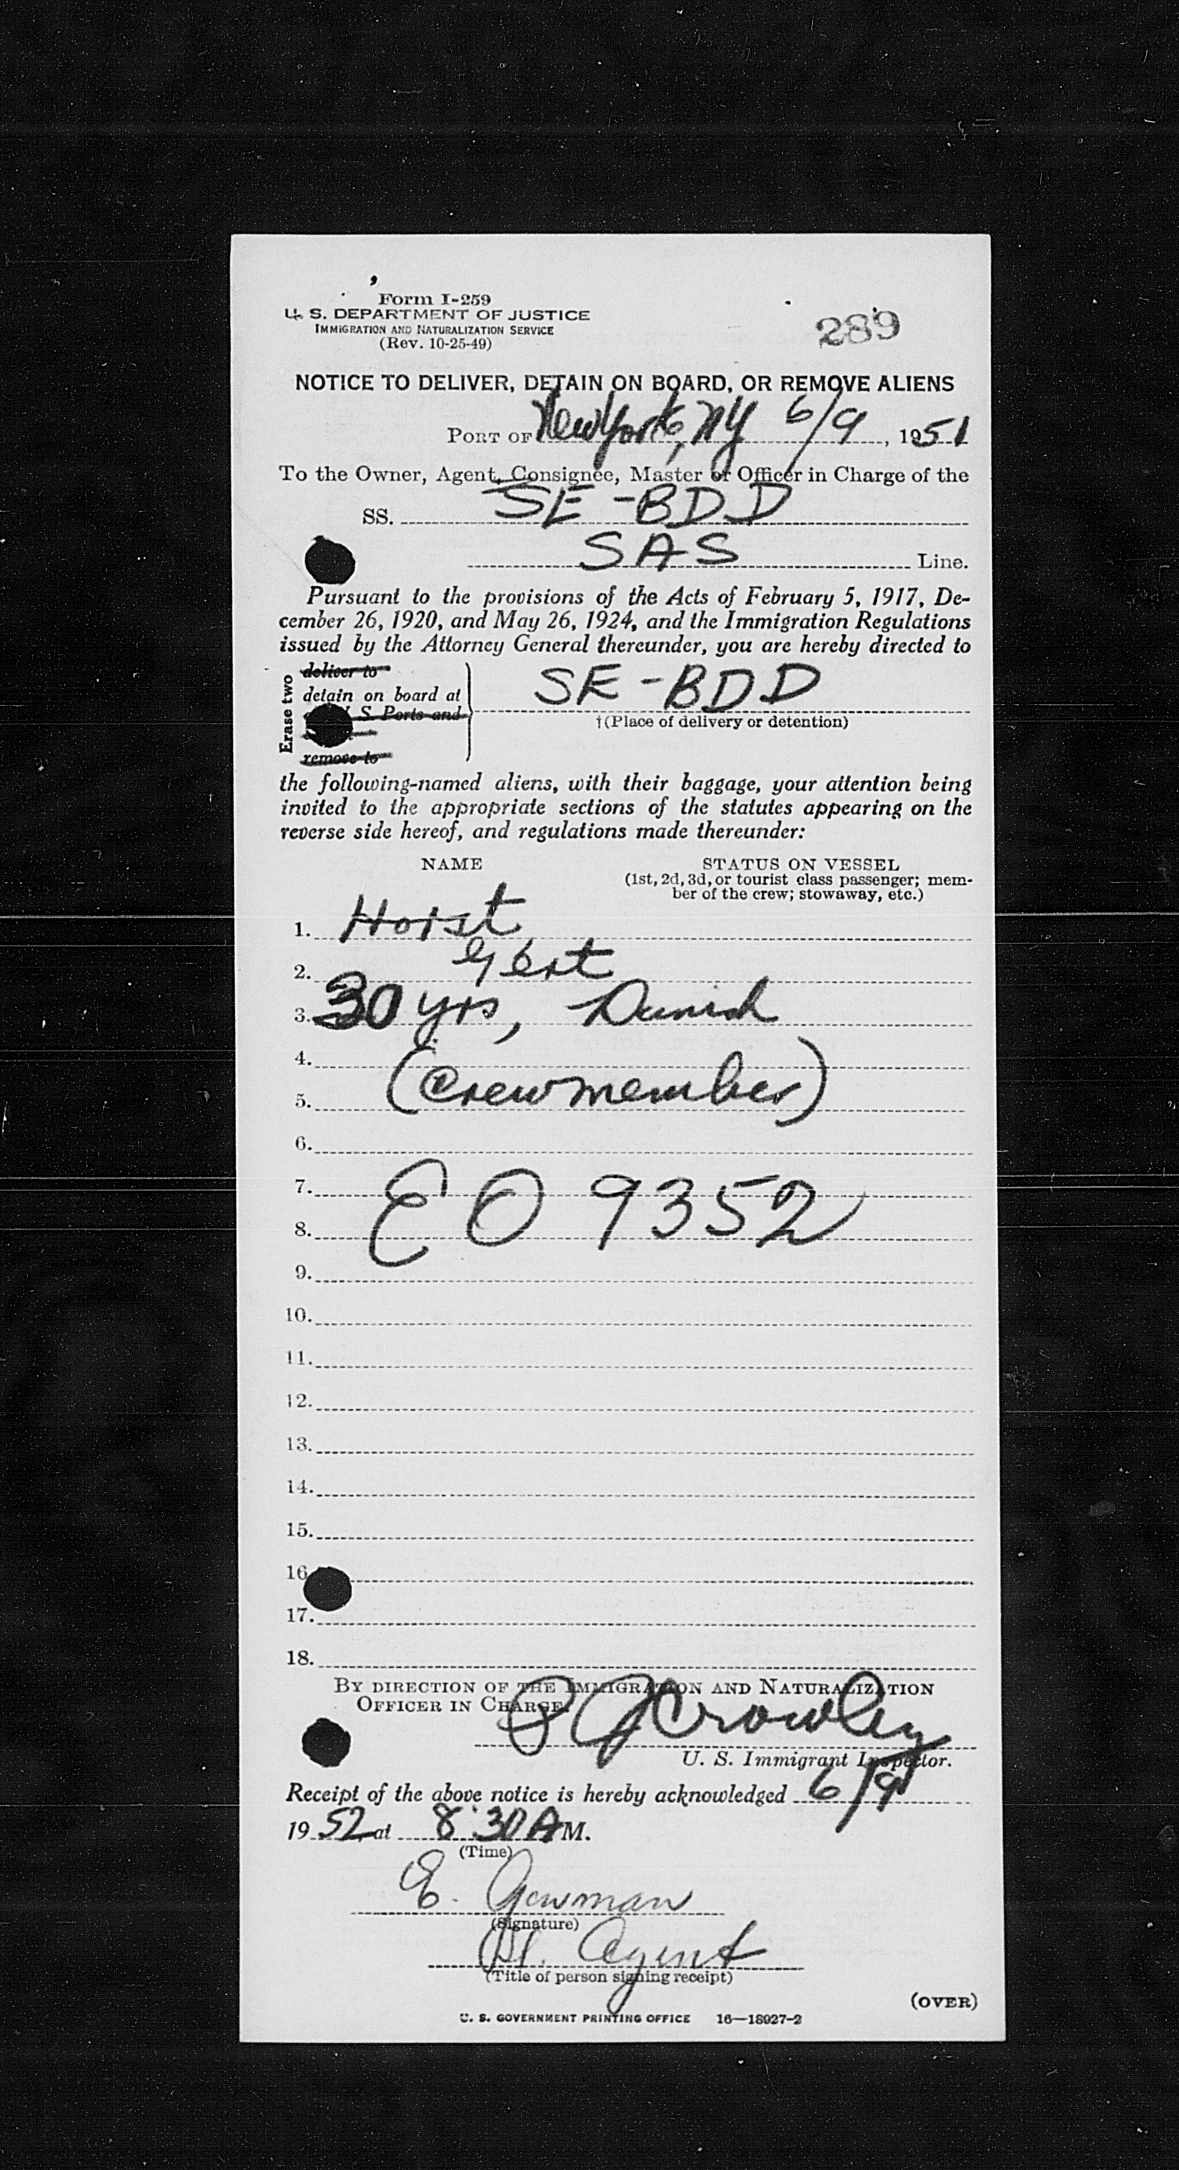 Form I-259
U. S. DEPARTMENT OF JUSTICE
IMMIGRATION AND NATURALIZATION SERVICE
(Rev. 10-25-49)
289
NOTICE TO DELIVER, DETAIN ON BOARD, OR REMOVE ALIENS
PORT OF New York, NY 6/9, 1951
To the Owner, Agent, Consignee, Master or Officer in Charge of the
SS. SE-BDD
SAS Line.
Pursuant to the provisions of the Acts of February 5, 1917, De-
cember 26, 1920, and May 26, 1924, and the Immigration Regulations
issued by the Attorney General thereunder, you are hereby directed to
Erase two
deliver to
detain on board at
S. Ports and
remove to
SE-BDD
†(Place of delivery or detention)
the following-named aliens, with their baggage, your attention being
invited to the appropriate sections of the statutes appearing on the
reverse side hereof, and regulations made thereunder:
NAME STATUS ON VESSEL
(1st, 2d, 3d, or tourist class passenger; mem-
ber of the crew; stowaway, etc.)
1. Horst
2. Gert
3. 30 yrs, Danish
4.
5. (Crewmember)
6.
7. EO 9352
8.
9.
10.
11.
12.
13.
14.
15.
16.
17.
18.
BY DIRECTION OF THE IMMIGRATION AND NATURALIZATION
OFFICER IN CHARGE.
Crowley
U. S. Immigrant Inspector.
Receipt of the above notice is hereby acknowledged 6/9
1952 at 8:30 A M.
(Time)
E.
(Signature)
Agent
(Title of person signing receipt)
(OVER)
U. S. GOVERNMENT PRINTING OFFICE 16—18027-2